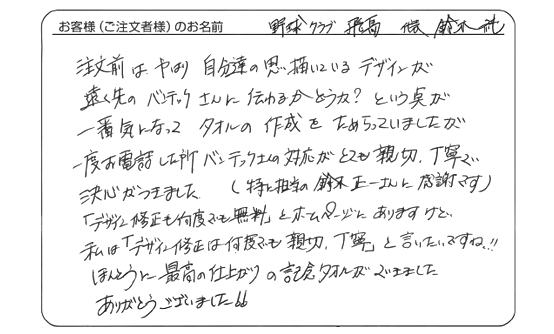 お客様（ご注文者様）のお名前 野球クラブ 飛高 様 鈴木 純
注文前は やはり 自分達の思い描いている デザインが
遠く先の バンテックさんに 伝わるかどうか？ という点が
一番気になって タオルの 作成を ためらっていましたが
一度お電話した所 バンテックさんの対応が とても 親切、丁寧で
決心がつきました （特に担当の 鈴木 正一さんに 感謝です）
「デザイン修正も何度でも無料」とホームページに ありますけど、
私は「デザイン修正は何度でも 親切、丁寧」と言いたいですね!!
ほんとうに 最高の仕上がりの 記念タオルが できました
ありがとう ございました